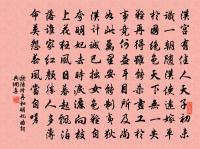 漢宮有佳人天子初未
識一朝隨漢使遠嫁單
于國絕色天下無一失
難再得雖能殺畫工於
事竟何益耳目所及尚
如此萬里安能制夷狄
漢計誠已拙女色難自
誇明妃去時淚灑向枝
上花狂風日暮起飄泊
落誰家紅顏勝人多薄
命莫怨春風當自嗟
歐陽修再和明妃曲